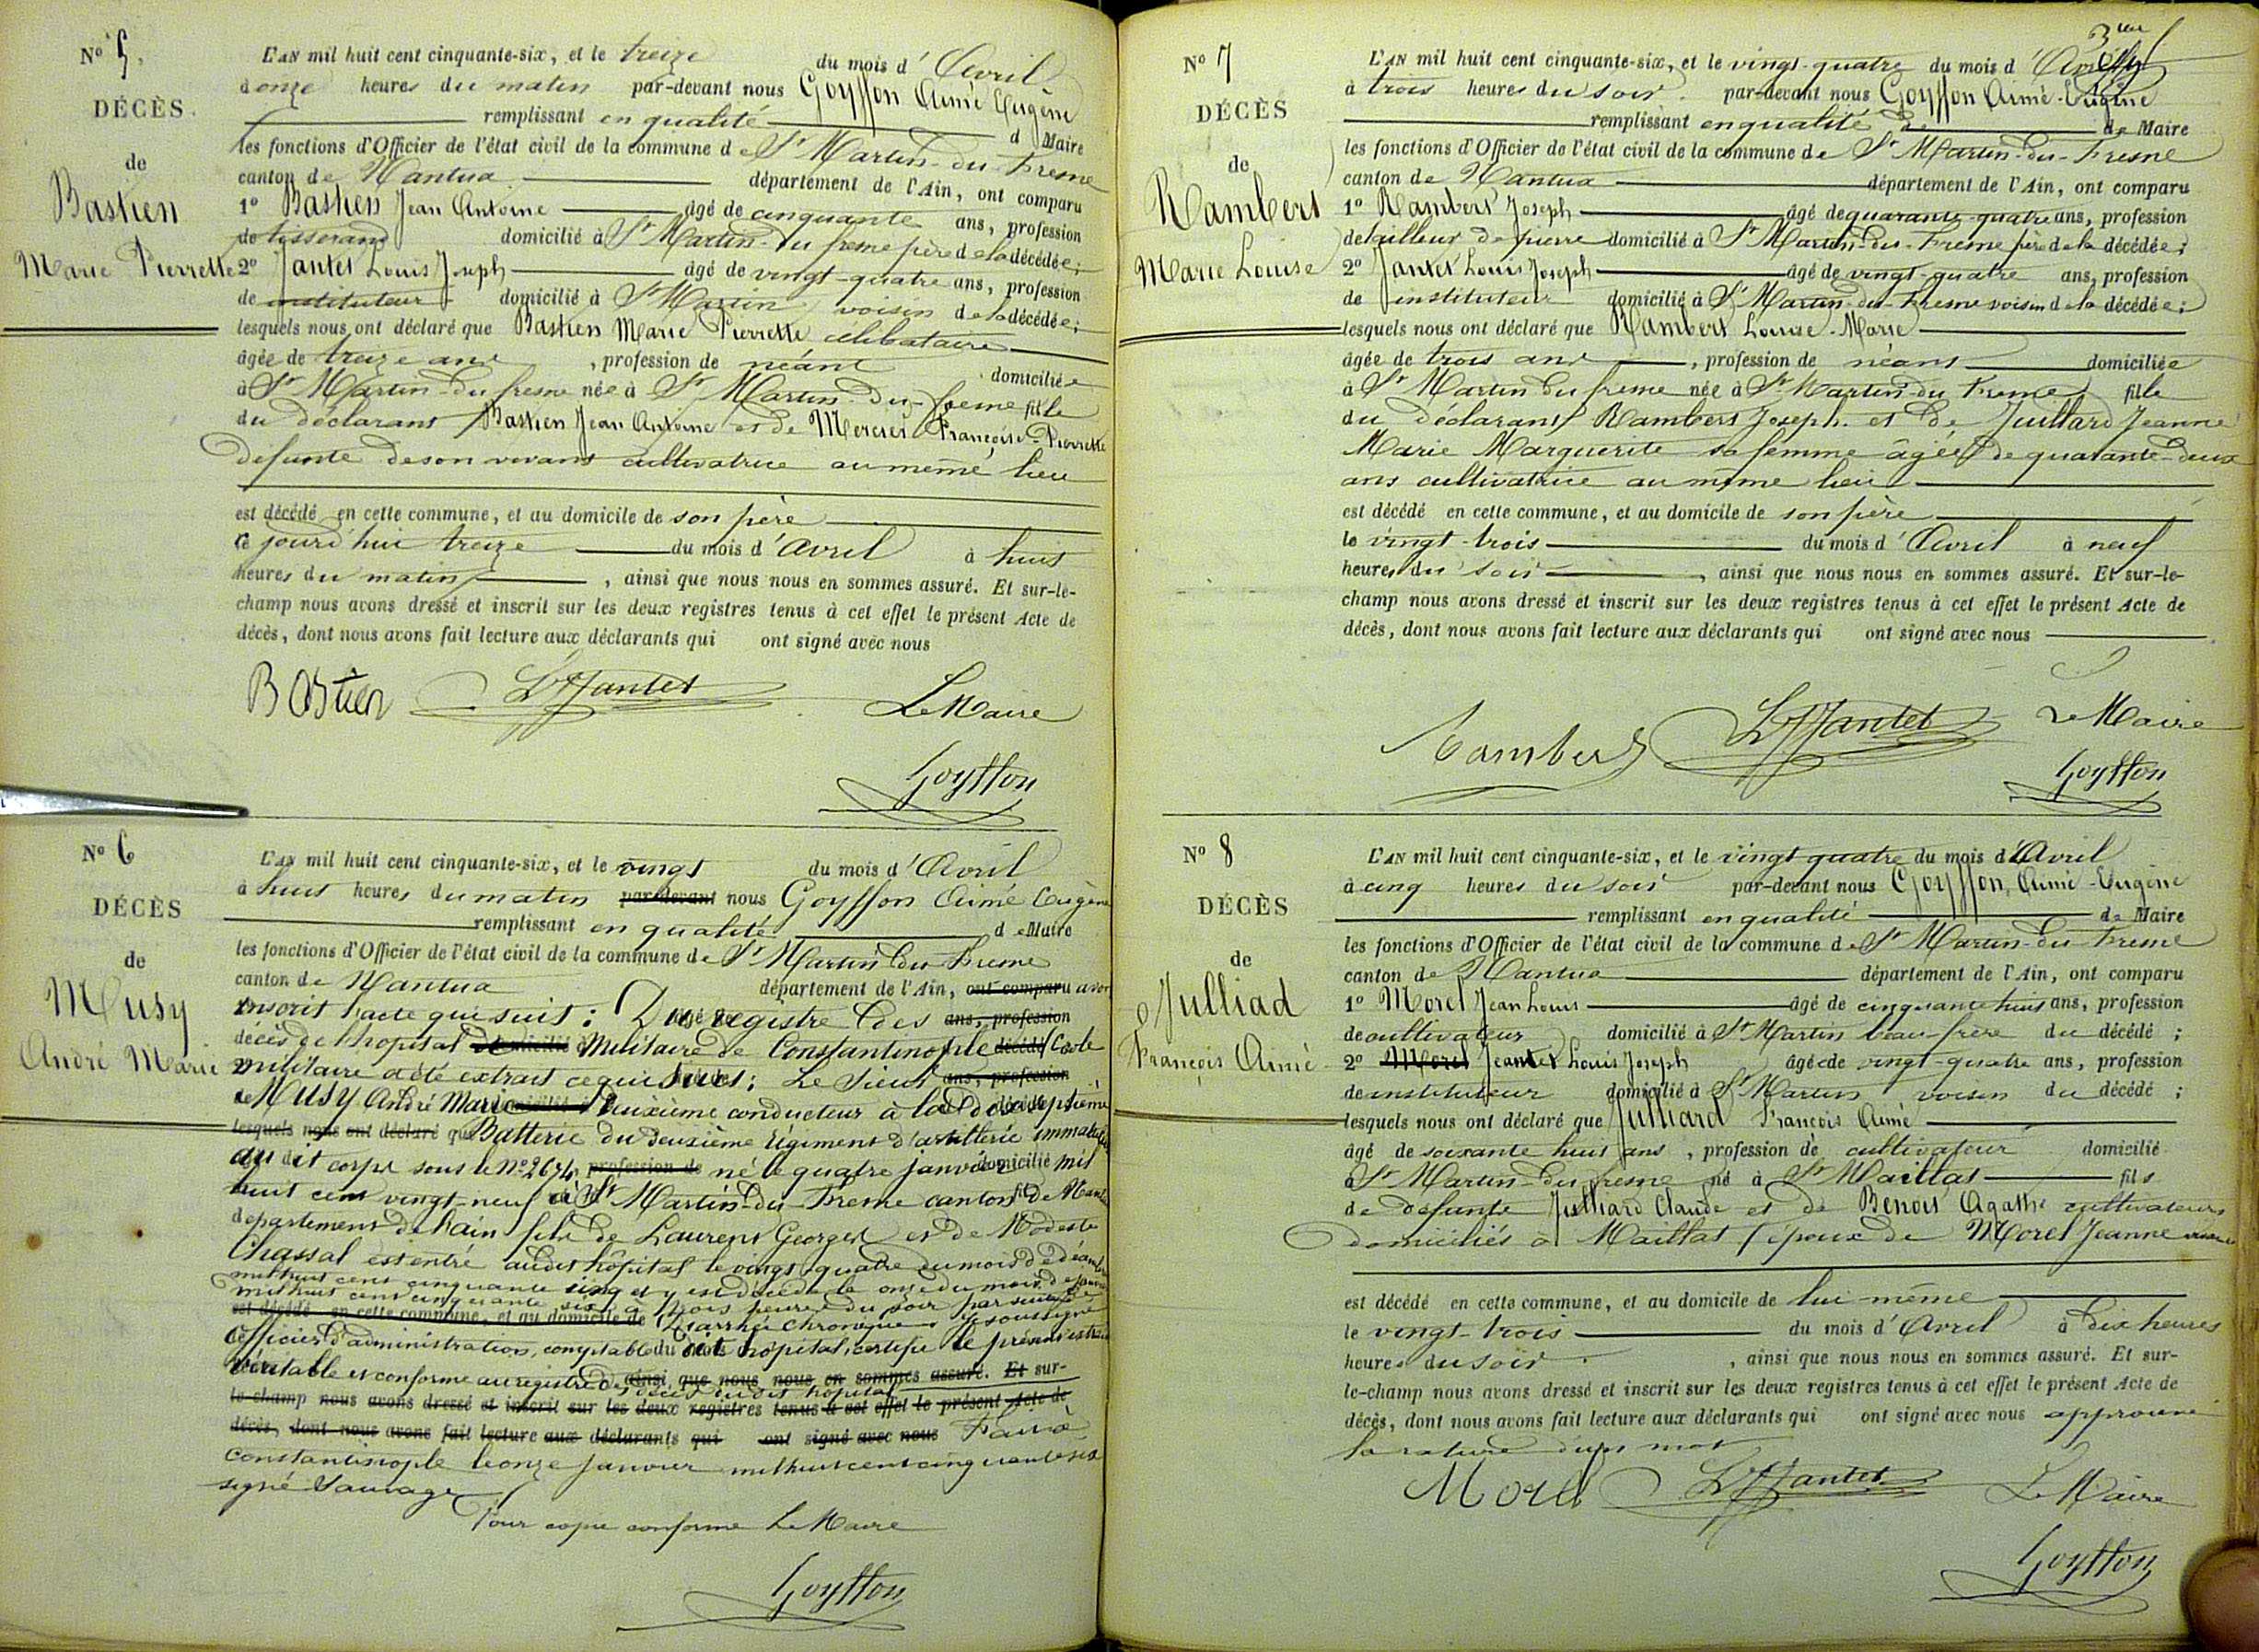 No 5.
DÉCÈS.
de
Bastien
Marie Pierrette
L'AN mil huit cent cinquante-six, et le treize du mois d'Avril
à onze heures du matin par-devant nous Goyffon Aimé Eugène
remplissant en qualité d Maire
les fonctions d'Officier de l'état civil de la commune de St Martin-du-Fresne
canton de Nantua département de l'Ain, ont comparu
1o Bastien Jean Antoine âgé de cinquante ans, profession
de tisserand domicilié à St Martin-du fresne père de la décédée;
2o Jantet Louis Joseph âgé de vingt-quatre ans, profession
de instituteur domicilié à St Martin voisin de la décédée;
lesquels nous ont déclaré que Bastien Marie Pierrette célibataire
âgée de treize ans, profession de néant domiciliée
à St Martin-du fresne née à St Martin-du-fresne fille
du déclarant Bastien Jean Antoine et de Mercier Françoise-Pierrette
défunte de son vivant cultivatrice au même lieu
est décédé en cette commune, et au domicile de son père
ce jourd'hui treize du mois d'Avril à huit
heures du matin, ainsi que nous nous en sommes assuré. Et sur-le-
champ nous avons dressé et inscrit sur les deux registres tenus à cet effet le présent Acte de
décès, dont nous avons fait lecture aux déclarants qui ont signé avec nous
Bastien LJJantet Le Maire
Goyffon
No 6
DÉCÈS
de
Musy
André Marie
L'AN mil huit cent cinquante-six, et le vingt du mois d'Avril
à huit heures du matin par-devant nous Goyffon Aimé Eugène
remplissant en qualité de Maire
les fonctions d'Officier de l'état civil de la commune de St Martin du Fresne
canton de Nantua département de l'Ain, ont comparu avons
inscrit l'acte qui suit: Du registre des ans, profession
décès de l'hopital domicilié à Militaire de Constantinople décédé Ecole
militaire a été extrait ce qui suit; Le Sieur ans, profession
de Musy André Marie deuxième conducteur à la dixseptième
lesquels nous ont déclaré que Batterie du deuxième régiment d'artillerie immatriculé
au dit corps sous le No 2674, profession de né le quatre janvier domicilié mil
huit cent vingt-neuf à St Martin-du-Fresne canton de Nantua
département de l'ain fils de Laurent Georges et de Modeste
Chassal est entré audit hôpital le vingt-quatre du mois de décembre
mil huit cent cinquante cinq et y est décédé le onze du mois de janvier
mil huit cent cinquante six à trois heures du soir par suite de
est décédé en cette commune, et au domicile de Diarrhée chronique. Je soussigné
officier d'administration, comptable du dit hôpital, certifie le présent extrait
véritable et conforme au registre des ainsi que nous nous en sommes assuré. Et sur-
décès du dit hôpital
le-champ nous avons dressé et inscrit sur les deux registres tenus à cet effet le présent Acte de
décès, dont nous avons fait lecture aux déclarants qui ont signé avec nous Fait à
constantinople le onze janvier mil huit cent cinquante six
signé Sauvage
Pour copie conforme Le Maire
Goyffon
3me
No 7
DÉCÈS
de
Rambert
Marie Louise
L'AN mil huit cent cinquante-six, et le vingt-quatre du mois d'Avril
à trois heures du soir par-devant nous Goyffon Aimé-Eugène
remplissant en qualité de Maire
les fonctions d'Officier de l'état civil de la commune de St Martin-du-Fresne
canton de Nantua département de l'Ain, ont comparu
1o Rambert Joseph âgé de quarante-quatre ans, profession
de tailleur de pierre domicilié à St Martin-du-Fresne père de la décédée;
2o Jantet Louis Joseph âgé de vingt-quatre ans, profession
de instituteur domicilié à St Martin-du-Fresne voisin de la décédée;
lesquels nous ont déclaré que Rambert Louise-Marie
âgée de trois ans, profession de néant domiciliée
à St Martin du fresne née à St Martin-du Fresne fille
du déclarant Rambert Joseph et de Juillard Jeanne
Marie Marguerite sa femme âgée de quarante-deux
ans cultivatrice au même lieu
est décédé en cette commune, et au domicile de son père
le vingt-trois du mois d'Avril à neuf
heures du soir, ainsi que nous nous en sommes assuré. Et sur-le-
champ nous avons dressé et inscrit sur les deux registres tenus à cet effet le présent Acte de
décès, dont nous avons fait lecture aux déclarants qui ont signé avec nous
Rambert LJJantet Le Maire
Goyffon
No 8
DÉCÈS
de
Julliad
François Aimé
L'AN mil huit cent cinquante-six, et le vingt quatre du mois d'Avril
à cinq heures du soir par-devant nous Goyffon, Aimé-Eugène
remplissant en qualité de Maire
les fonctions d'Officier de l'état civil de la commune de St Martin-du Fresne
canton de Nantua département de l'Ain, ont comparu
1o Morel Jean Louis âgé de cinquante huit ans, profession
de cultivateur domicilié à St Martin beau-frère du décédé;
2o Morel Jantet Louis Joseph âgé de vingt-quatre ans, profession
de instituteur domicilié à St Martin voisin du décédé;
lesquels nous ont déclaré que Julliard François Aimé
âgé de soixante huit ans, profession de cultivateur domicilié
à St Martin-du-fresne né à St Maillat fils
de défunts Julliard Claude et de Benoit Agathe cultivateurs
domiciliés à Maillat époux de Morel Jeanne
est décédé en cette commune, et au domicile de lui-même
le vingt-trois du mois d'Avril à dix heures
heures du soir, ainsi que nous nous en sommes assuré. Et sur-
le-champ nous avons dressé et inscrit sur les deux registres tenus à cet effet le présent Acte de
décès, dont nous avons fait lecture aux déclarants qui ont signé avec nous approuvé
la rature d'un mot
Morel LJJantet Le Maire
Goyffon